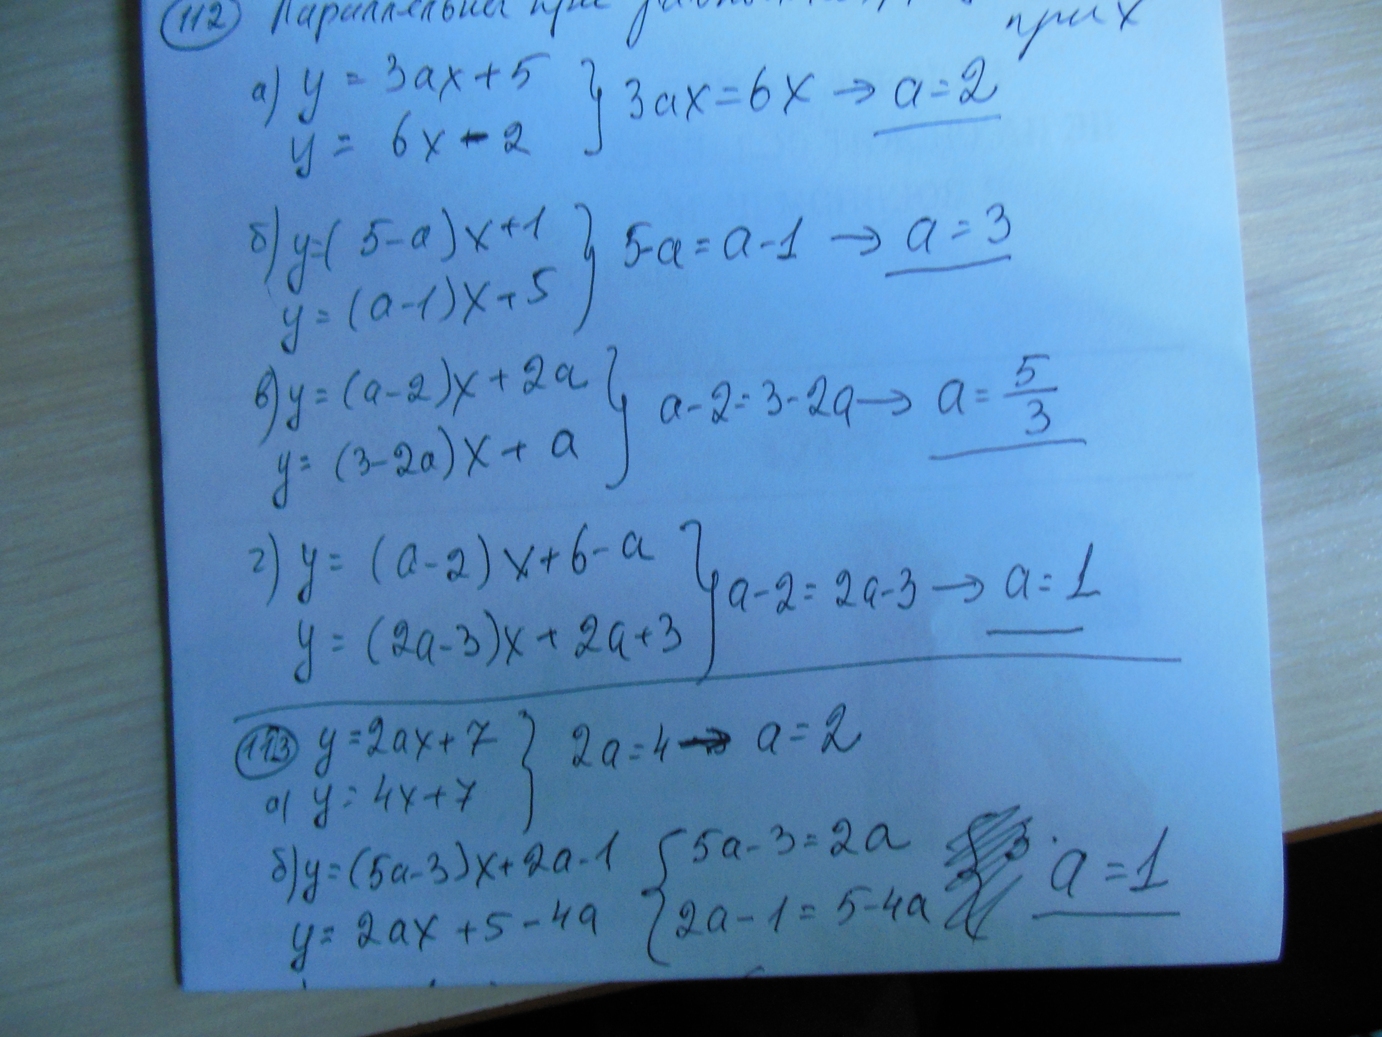 112 Параллельны при
при x
а) y = 3ax+5 } 3ax=6x → a=2
y = 6x-2
б) y=(5-a)x+1 } 5-a=a-1 → a=3
y=(a-1)x+5
в) y=(a-2)x+2a } a-2=3-2a → a=5/3
y=(3-2a)x+a
г) y=(a-2)x+6-a } a-2=2a-3 → a=1
y=(2a-3)x+2a+3
113 y=2ax+7 } 2a=4 → a=2
а) y=4x+7
б) y=(5a-3)x+2a-1 { 5a-3=2a a=1
y=2ax+5-4a { 2a-1=5-4a